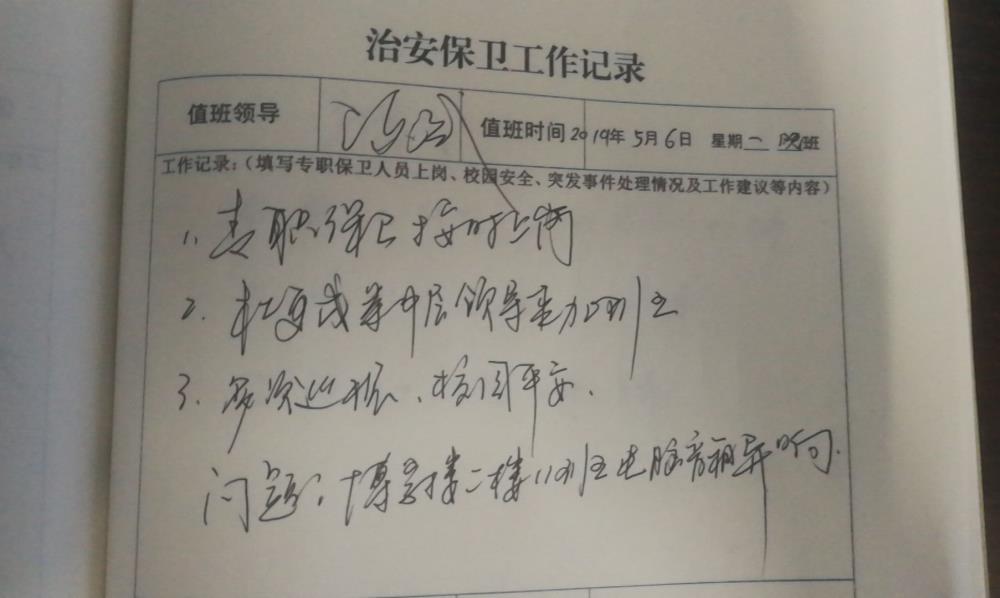 治安保卫工作记录
值班领导 值班时间 2019年5月6日 星期一 晚班
工作记录:(填写专职保卫人员上岗、校园安全、突发事件处理情况及工作建议等内容)
1、专职保卫按时上岗
2. 杜 中层领导来加班
3. 多次巡 、校园平安.
问题:博 楼二楼 班 电脑音箱异响.